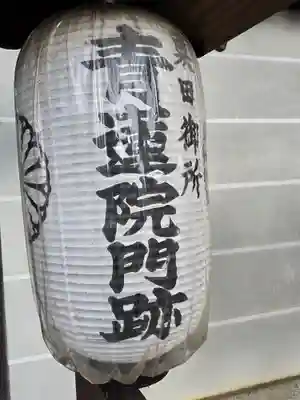 粟田御所
青蓮院門跡